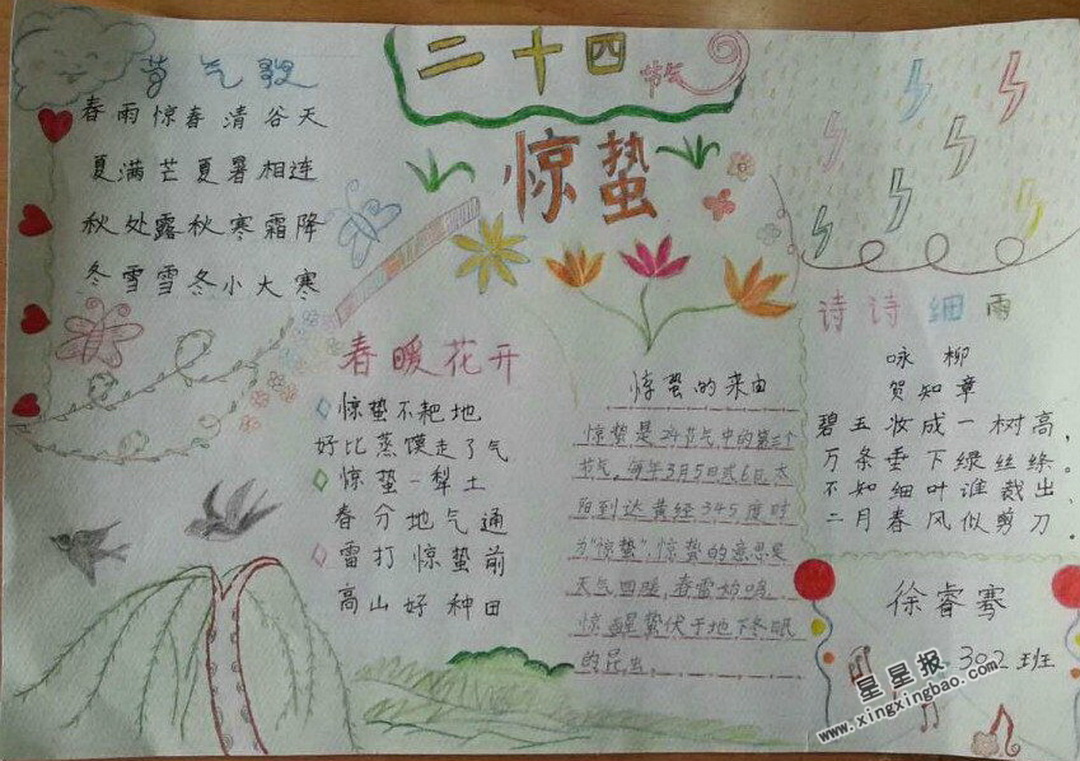 节气歌
春雨惊春清谷天
夏满芒夏暑相连
秋处露秋寒霜降
冬雪雪冬小大寒
二十四
节气
惊蛰
春暖花开
惊蛰不耙地
好比蒸馍走了气
惊蛰一犁土
春分地气通
雷打惊蛰前
高山好种田
惊蛰的来由
惊蛰是24节气中的第三个
节气,每年3月5日或6日太
阳到达黄经345度时
为"惊蛰",惊蛰的意思是
天气回暖,春雷始鸣
惊醒蛰伏于地下冬眠
的昆虫。
诗诗细雨
咏柳
贺知章
碧玉妆成一树高,
万条垂下绿丝绦。
不知细叶谁裁出,
二月春风似剪刀。
徐睿骞
302班
星星报
www.xingxingbao.com